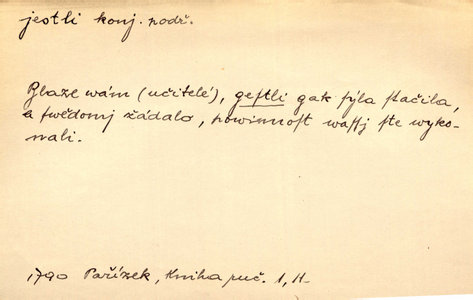 jestli konj. podř.
Blaze wám (učitelé), gestli gak sýla stačila,
a swědomj žádalo, powinnost wassj ste wyko-
nali.
1790 Pařízek, Kniha puč. 1, H